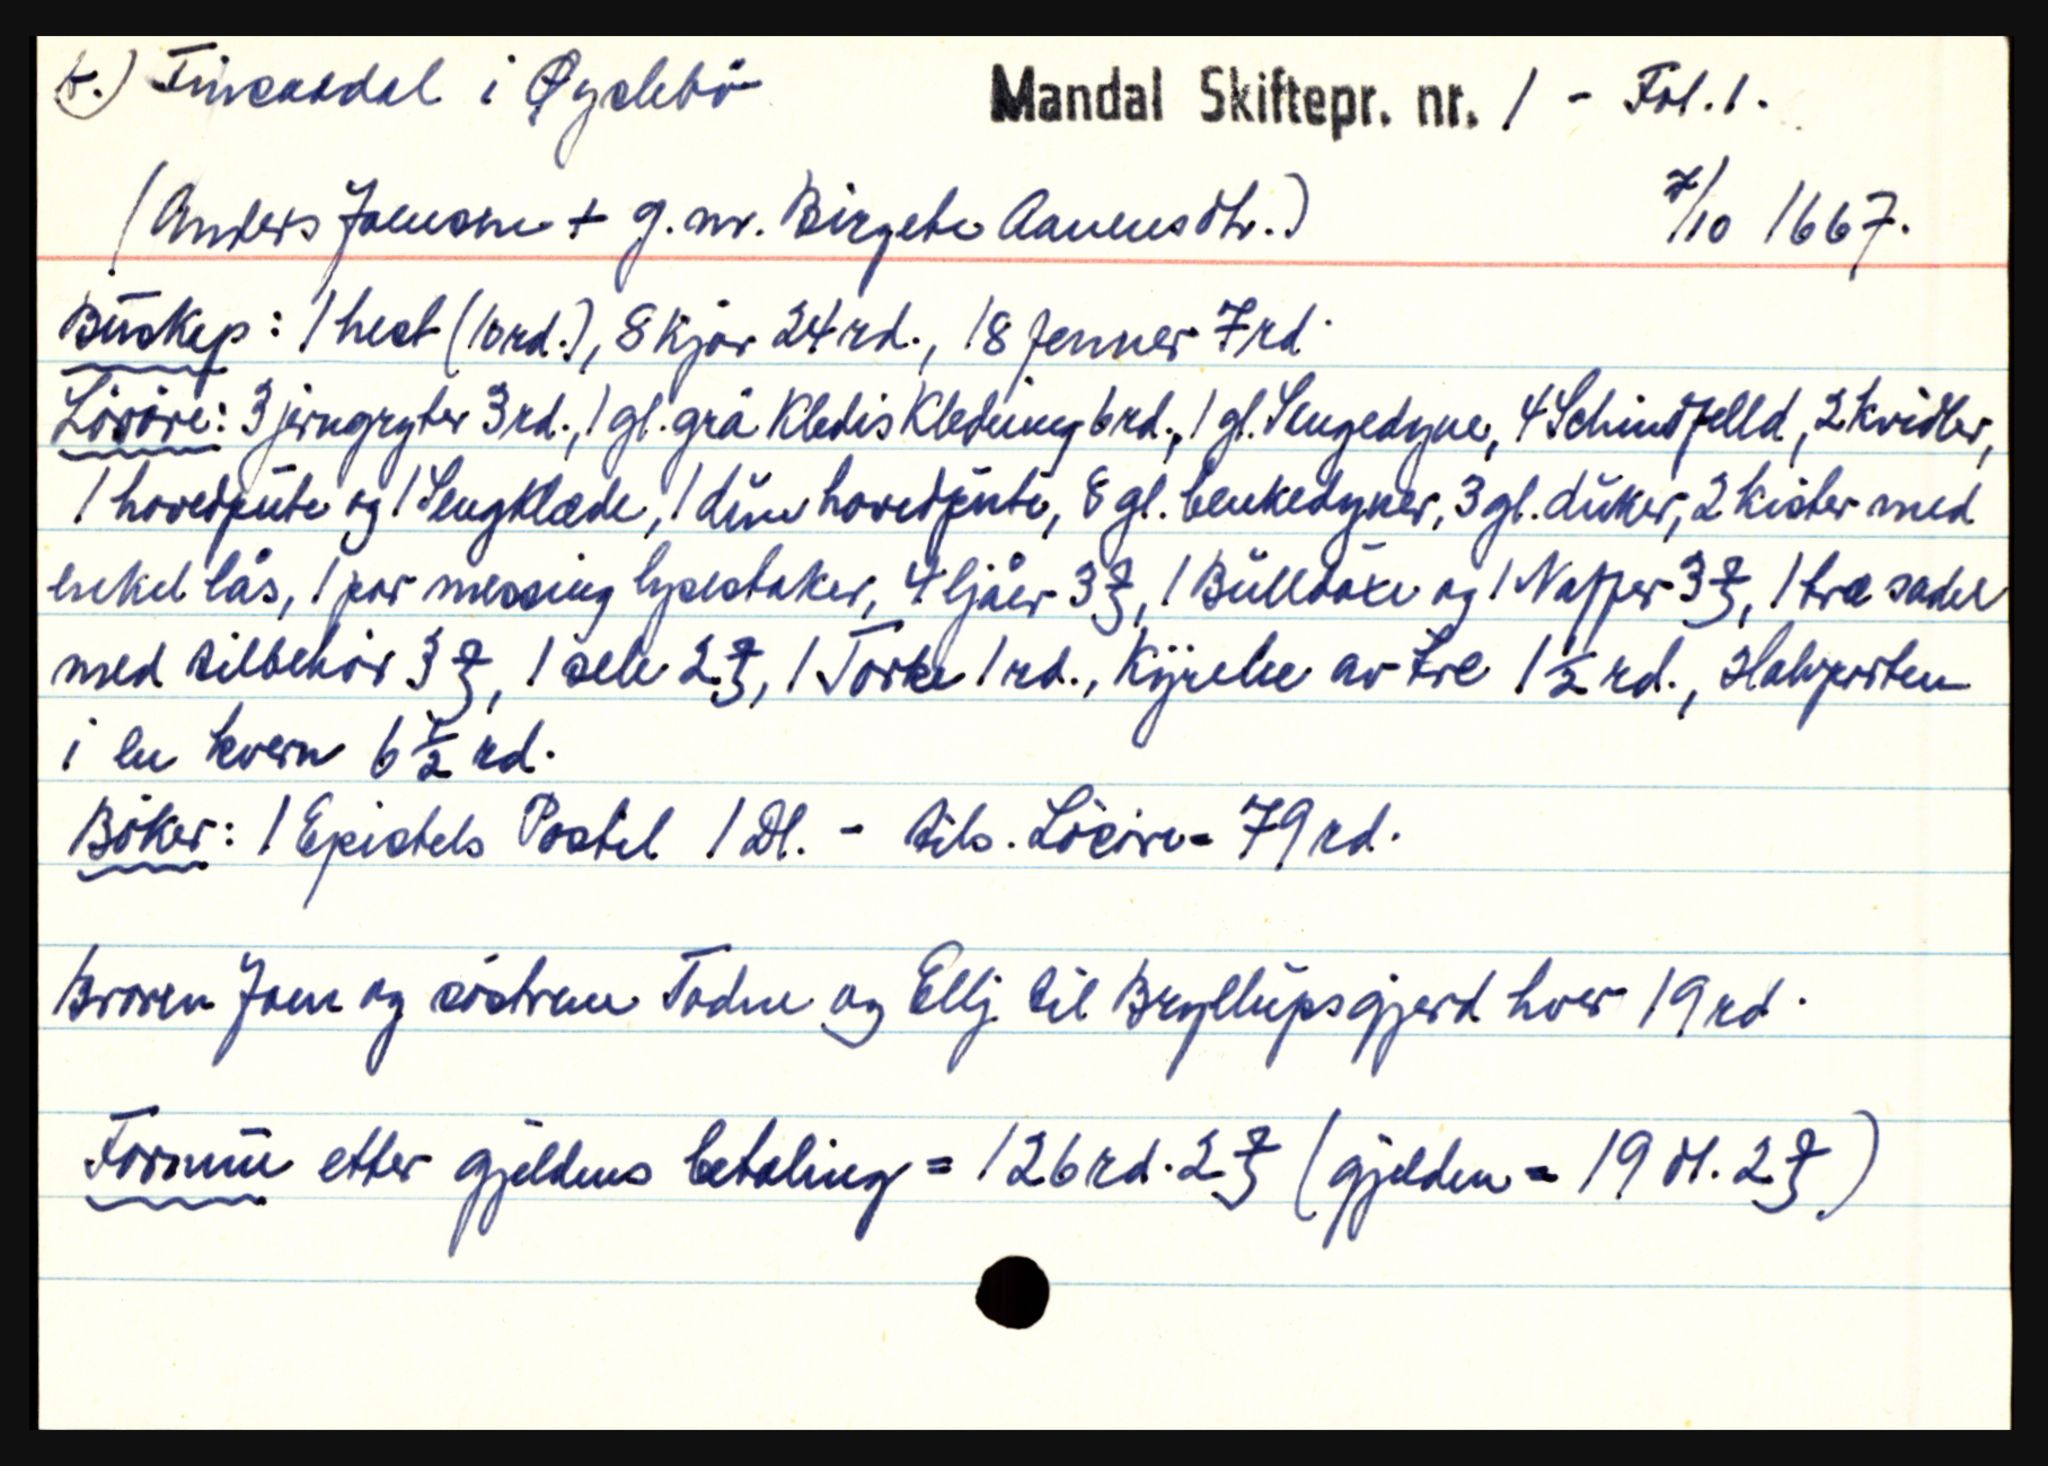 t.) Finsaadal i Øyslebö Mandal Skiftepr. nr. 1 - Fol. 1.
(Anders Joensøn + g. m. Birgete Aanensdtr.) 7/10 1667.
Buskap: 1 hest (10 rd.), 8 kjør 24 rd., 18 fenner 7 rd.
Lösöre: 3 jerngryter 3 rd., 1 gl. grå Kledis Kledning 6 rd., 1 gl. Sengedyne, 4 Schindfelld, 2 kvidler,
1 hovedpute og 1 Sengklæde, 1 dun hovedpute, 8 gl. benkedyner, 3 gl. duker, 2 kister med
enkel lås, 1 par messing lysestaker, 4 ljåer 3 ℥, 1 Bulløøxe og 1 Naffer 3 ℥, 1 træ sadel
med tilbehör 3 ℥, 1 sele 2 ℥, 1 1 rd., av tre 1 1/2 rd., Halvparten
i en kvern 6 1/2 rd.
Böker: 1 Epistels Postil 1 Dl. - tils. Lösöre = 79 rd.
Broren Joen og söstrene Todne og Ellj til Bryllupsgjerd hver 19 rd.
Formue etter gjeldens betaling = 126 rd. 2 ℥ (gjelden = 19 dl. 2 ℥)